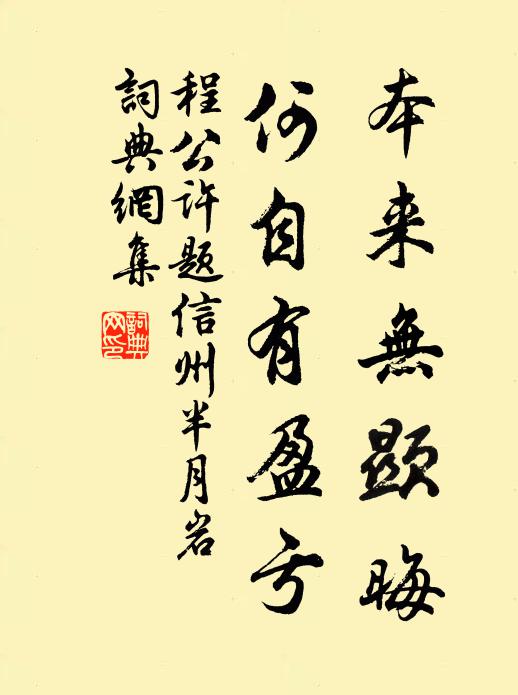 本来無顕晦
何自有盈亏
程公许题信州半月岩
詞典網集
詞典
网印